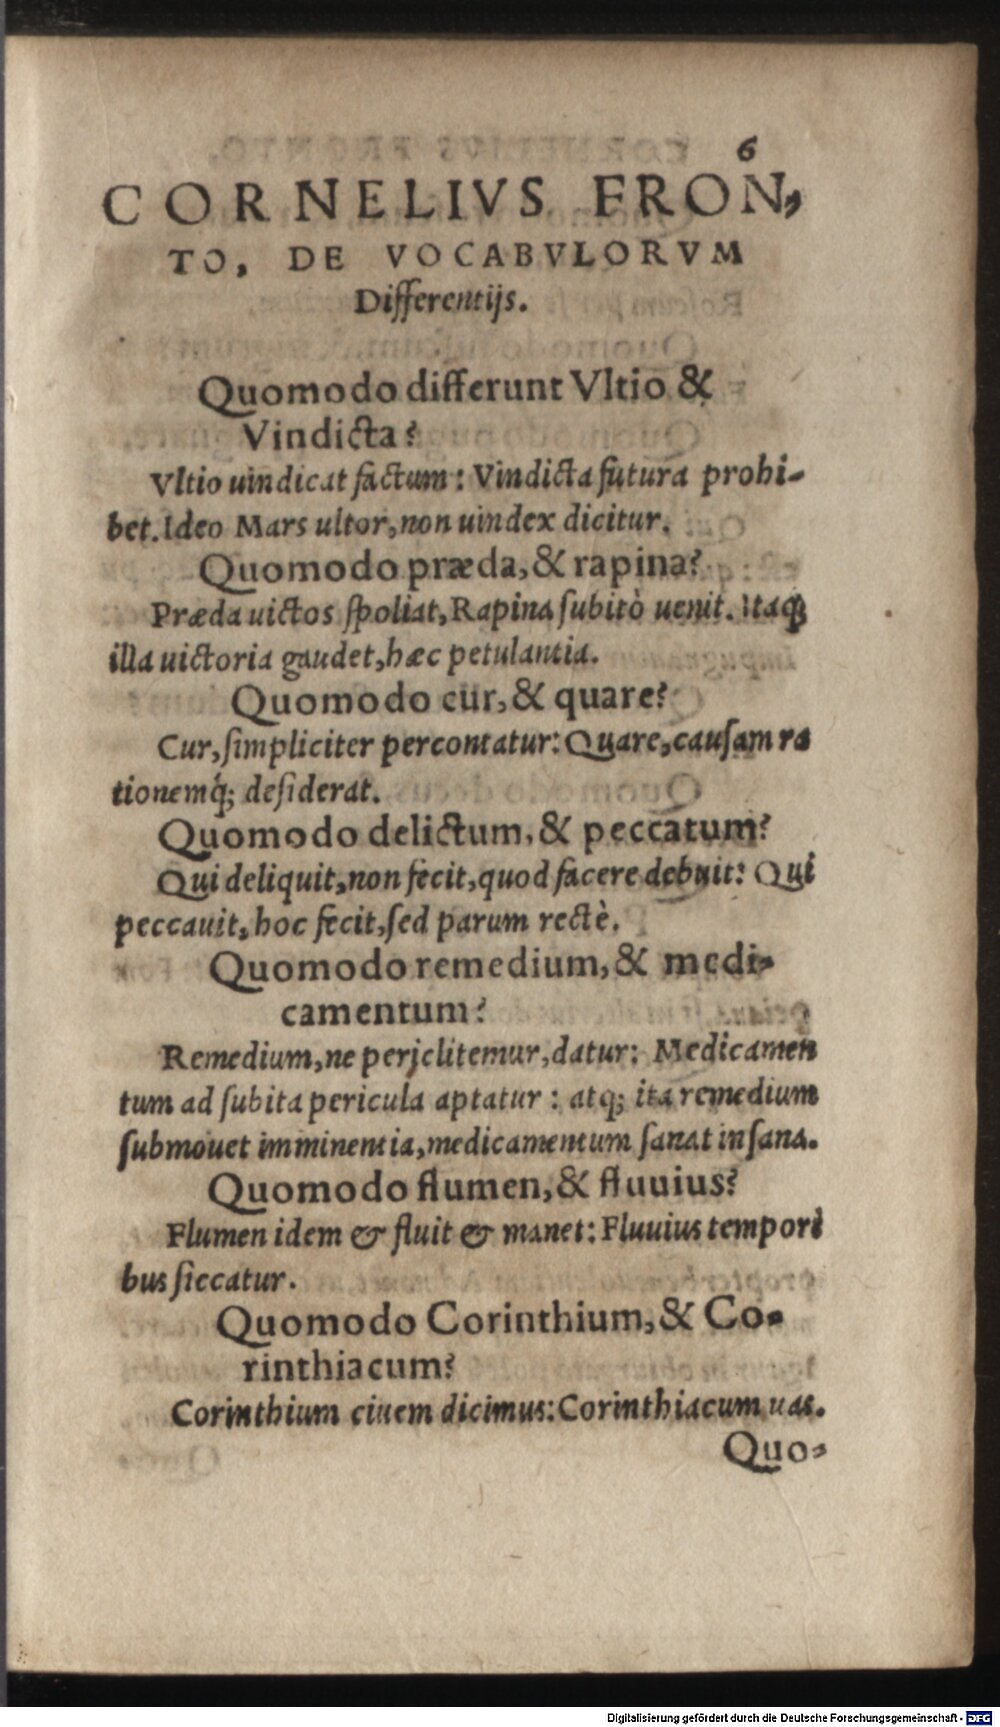 6
CORNELIVS FRON,
TO, DE VOCABVLORVM
Differentijs.
Quomodo differunt Vltio &
Vindicta?
Vltio uindicat factum: Vindicta futura prohi-
bet. Ideo Mars ultor, non uindex dicitur.
Quomodo præda, & rapina?
Præda uictos spoliat, Rapina subitò uenit. Itaq;
illa uictoria gaudet, hæc petulantia.
Quomodo cur, & quare?
Cur, simpliciter percontatur: Quare, causam ra
tionemq́; desiderat.
Quomodo delictum, & peccatum?
Qui deliquit, non fecit, quod facere debuit: Qui
peccauit, hoc fecit, sed parum rectè.
Quomodo remedium, & medi-
camentum?
Remedium, ne periclitemur, datur: Medicamen
tum ad subita pericula aptatur: atq; ita remedium
submouet imminentia, medicamentum sanat insana.
Quomodo flumen, & fluuius?
Flumen idem & fluit & manet: Fluuius tempori
bus siccatur.
Quomodo Corinthium, & Co-
rinthiacum?
Corinthium ciuem dicimus: Corinthiacum uas.
Quo-
Digitalisierung gefördert durch die Deutsche Forschungsgemeinschaft - DFG